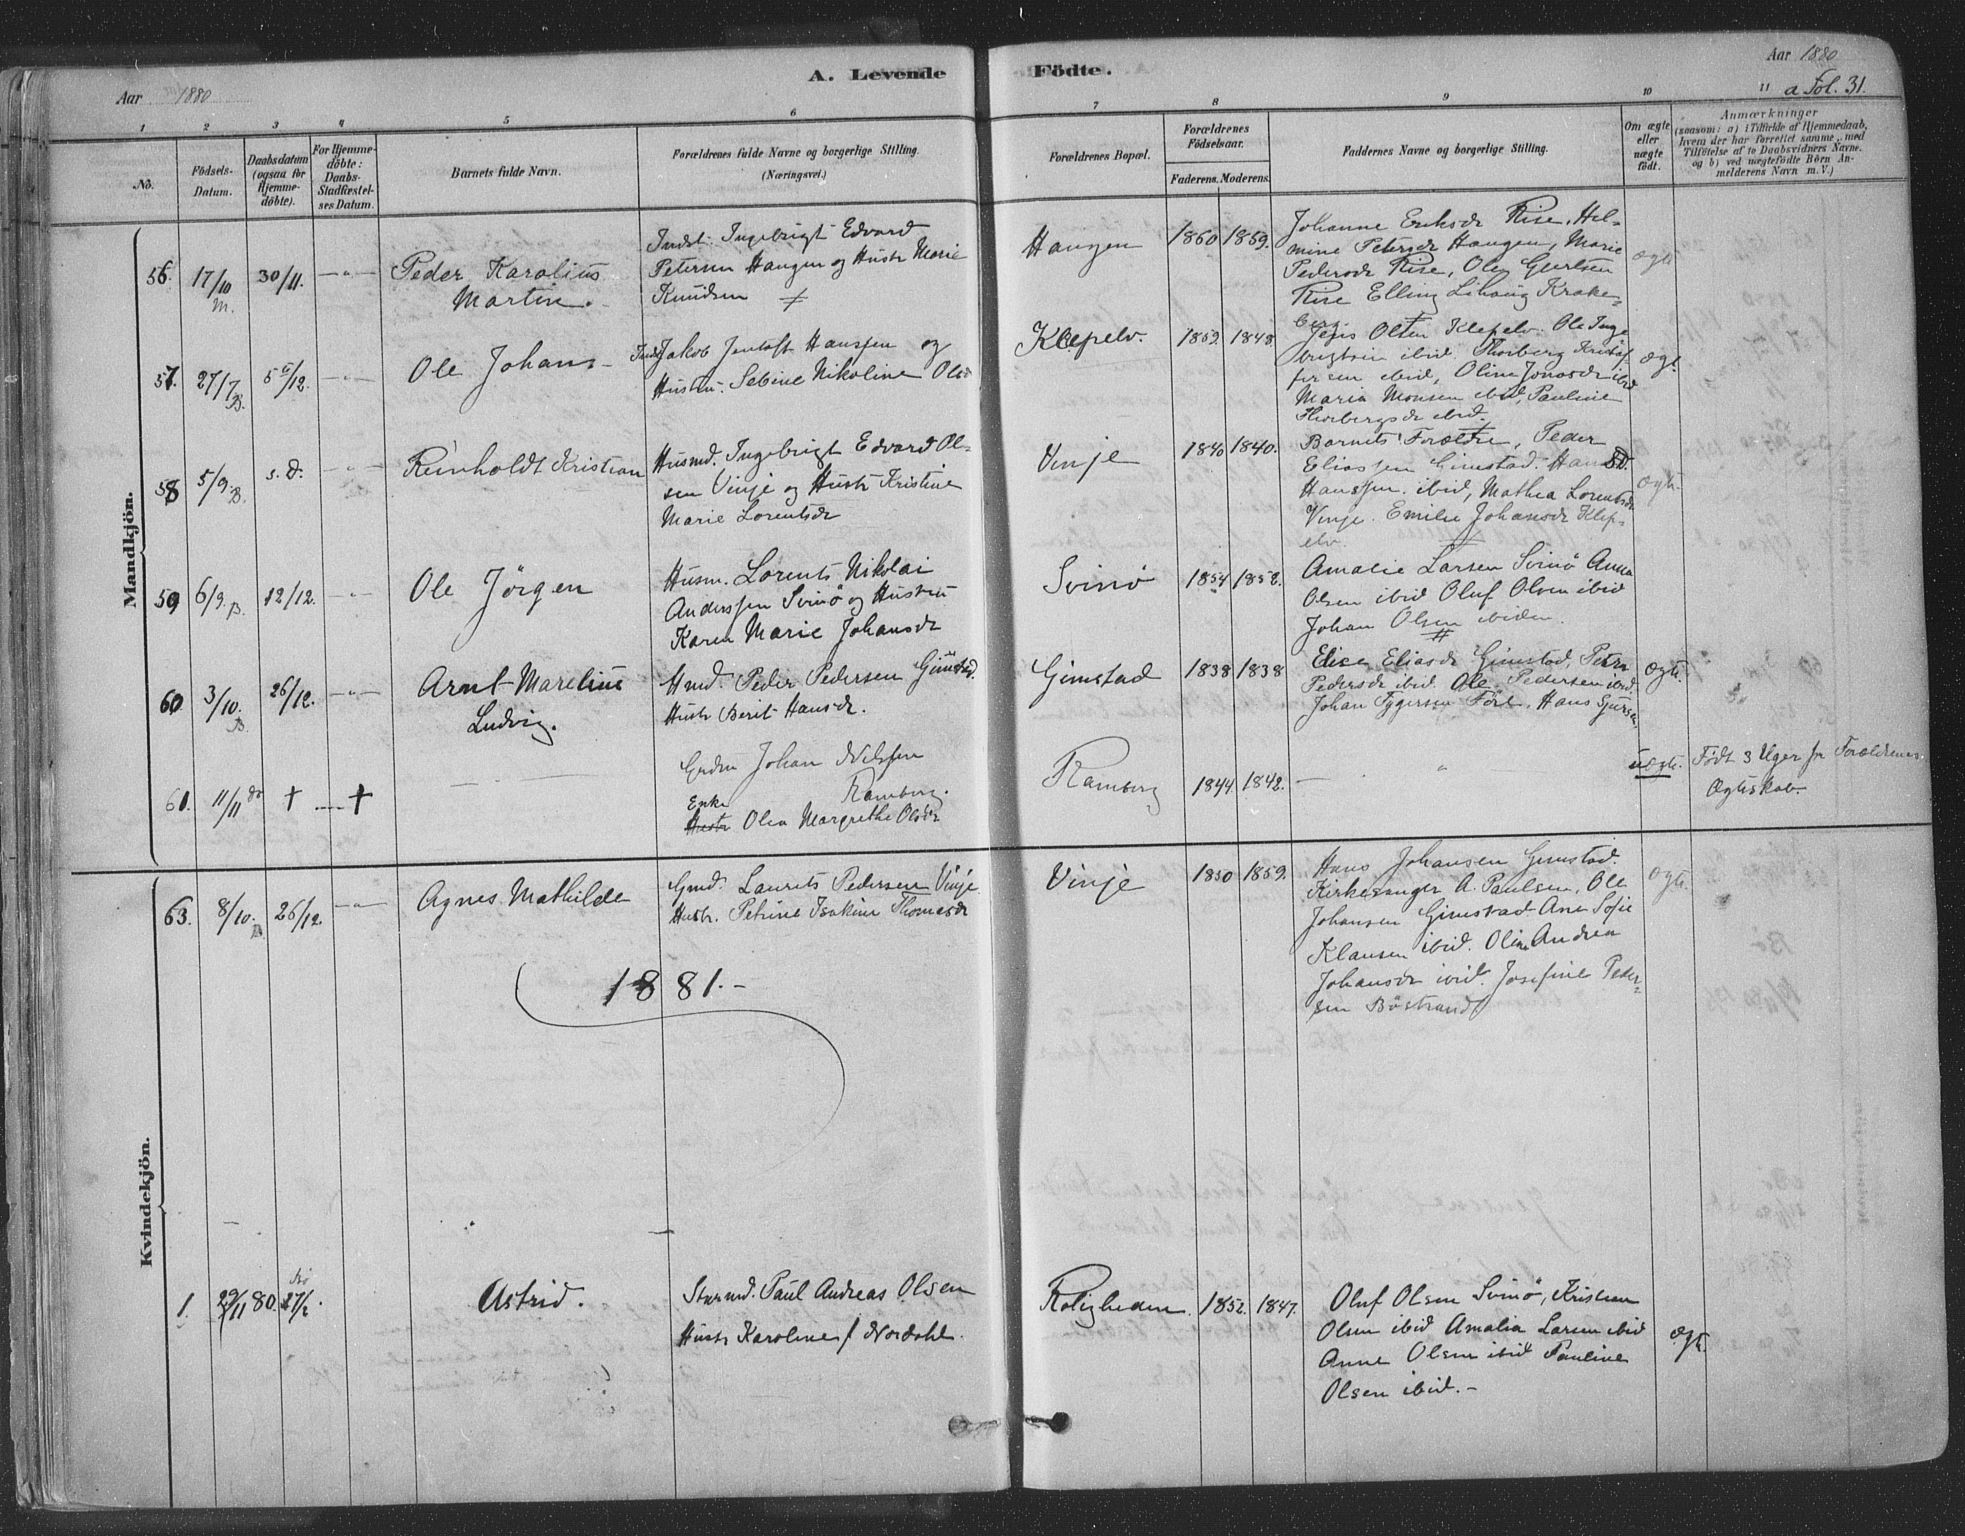 A. Levende Födte.
Aar 1880
Aar 1880
a Fol. 31.
1 2 3 4 5 6 7 8 9 10 11
No.
Födsels-
Datum.
Daabsdatum
(ogsaa for
Hjemme-
döbte).
For Hjemme-
döbte:
Daabs-
Stadfæstel-
ses Datum.
Barnets fulde Navn.
Forældrenes fulde Navne og borgerlige Stilling.
(Næringsvei.)
Forældrenes Bopæl.
Forældrenes
Födselsaar.
Faderens. Moderens.
Faddernes Navne og borgerlige Stilling.
Om ægte
eller
uægte
födt.
Anmærkninger
(saasom: a) i Tilfælde af Hjemmedaab,
hvem der har forrettet samme, med
Tilföielse af to Daabsvidners Navne.
og b) ved uægtefödte Börn An-
melderens Navn m. V.)
Mandkjön.
56. 17/10 M. 30/11. — „ —
Peder Karolius
Martin.
Indst. Ingebrigt Edvard
Petersen Haugen og Hustr Marie
Knudsen
Haugen 1860 1859.
Johanne Eriksdr Rise, Hel-
mine Petersdr Haugen, Marie
Pedersdr Rise, Ole Gjertsen
Rise Elling Lihaug Krake-
berg.
ægt.
57. 27/7 B. 5/12. — „ —
Ole Johan
Inds Jakob Jentoft Hanssen og
Hustru. Sebine Nikoline Olsdr
Klepelv. 1859. 1848.
Jens Olsen Klepelv. Ole Inge
brigtsen ibid. Thorberg Kristof
fersen ibid, Oline Jonasdr ibid
Maria Monsen ibid, Pauline
Thorbergsdr ibid.
ægt.
58 5/9. B. s. D. — „ —
Reinholdt Kristian
Husmd. Ingebrigt Edvard Ol-
sen Vinje og Hustr Kristine
Marie Lorentsdr
Vinje 1840 1840.
Barnets Forældre, Peder
Eliassen Gimstad. Hans
Hanssen. ibid, Mathea Lorentsdr
Vinje. Emilie Johansdr Klep-
elv.
ægt.
59 6/9. B. 12/12. — „ —
Ole Jörgen
Husm. Lorents Nikolai
Anderssen Svinö og Hustru
Karen Marie Johansdr
Svinö 1854 1852.
Amalie Larsen Svinö Anna
Olsen ibid Oluf Olsen ibid
Johan Olsen ibidem.
60 3/10. B. 26/12. — „ —
Arnt Marelius
Ludvig.
Hmd. Peder Pedersen Gimstad.
Hustr Berit Hansdr.
Gimstad 1838 1838
Elise Eliasdr Gimstad, Petra
Pedersdr ibid. Ole Pedersen ibid.
Johan Tygersen Före, Hans
ægt.
61. 11/11 † †
Johan Nilssen
Ramberg.
Enke
Hustr Olea Margrethe Olsdr
Ramberg 1844. 1842. — „ —
uægt.
Födt 3 Uger för Forældrenes
Ægteskab.
Kvindekjön.
63. 8/10. B. 26/12. — „ —
Agnes Mathilde
Gmd. Laurits Pedersen Vinje
Hustr. Petrine Isakine Thomasdr
Vinje 1850 1859.
Hans Johansen Gimstad.
Kirkesanger A. Paulsen. Ole
Johansen Gimstad Ane Sofie
Klausen ibid. Oline Andrea
Johansdr ibid. Josefine Peder-
sen Böstrand
ægt.
1881.-
1. 29/11 80. 27/2.
Astrid.
Paul Andreas Olsen
Hustr Karoline f. Nordahl.
Roligheden 1852. 1847.
Oluf Olsen Svinö, Kristian
Olsen ibid Amalia Larsen ibid
Anne Olsen ibid Pauline
Olsen ibid.-
ægt.